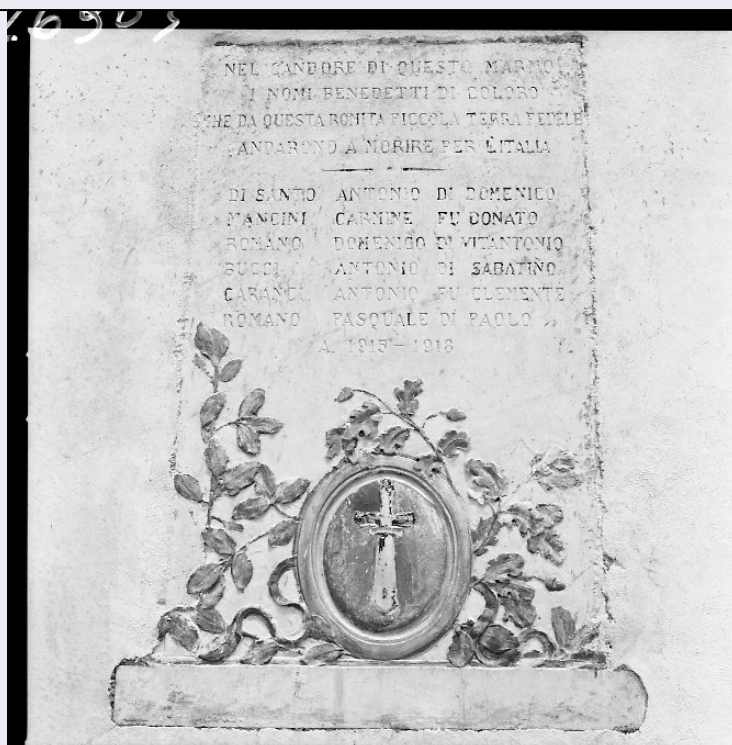 26903
NEL CANDORE DI QUESTO MARMO
I NOMI BENEDETTI DI COLORO
CHE DA QUESTA ROMITA PICCOLA TERRA FEDELE
ANDARONO A MORIRE PER L'ITALIA
DI SANTO ANTONIO DI DOMENICO
MANCINI CARMINE FU DONATO
ROMANO DOMENICO DI VITANTONIO
BUCCI ANTONIO DI SABATINO
CARANCI ANTONIO FU CLEMENTE
ROMANO PASQUALE DI PAOLO
A. 1915 - 1918